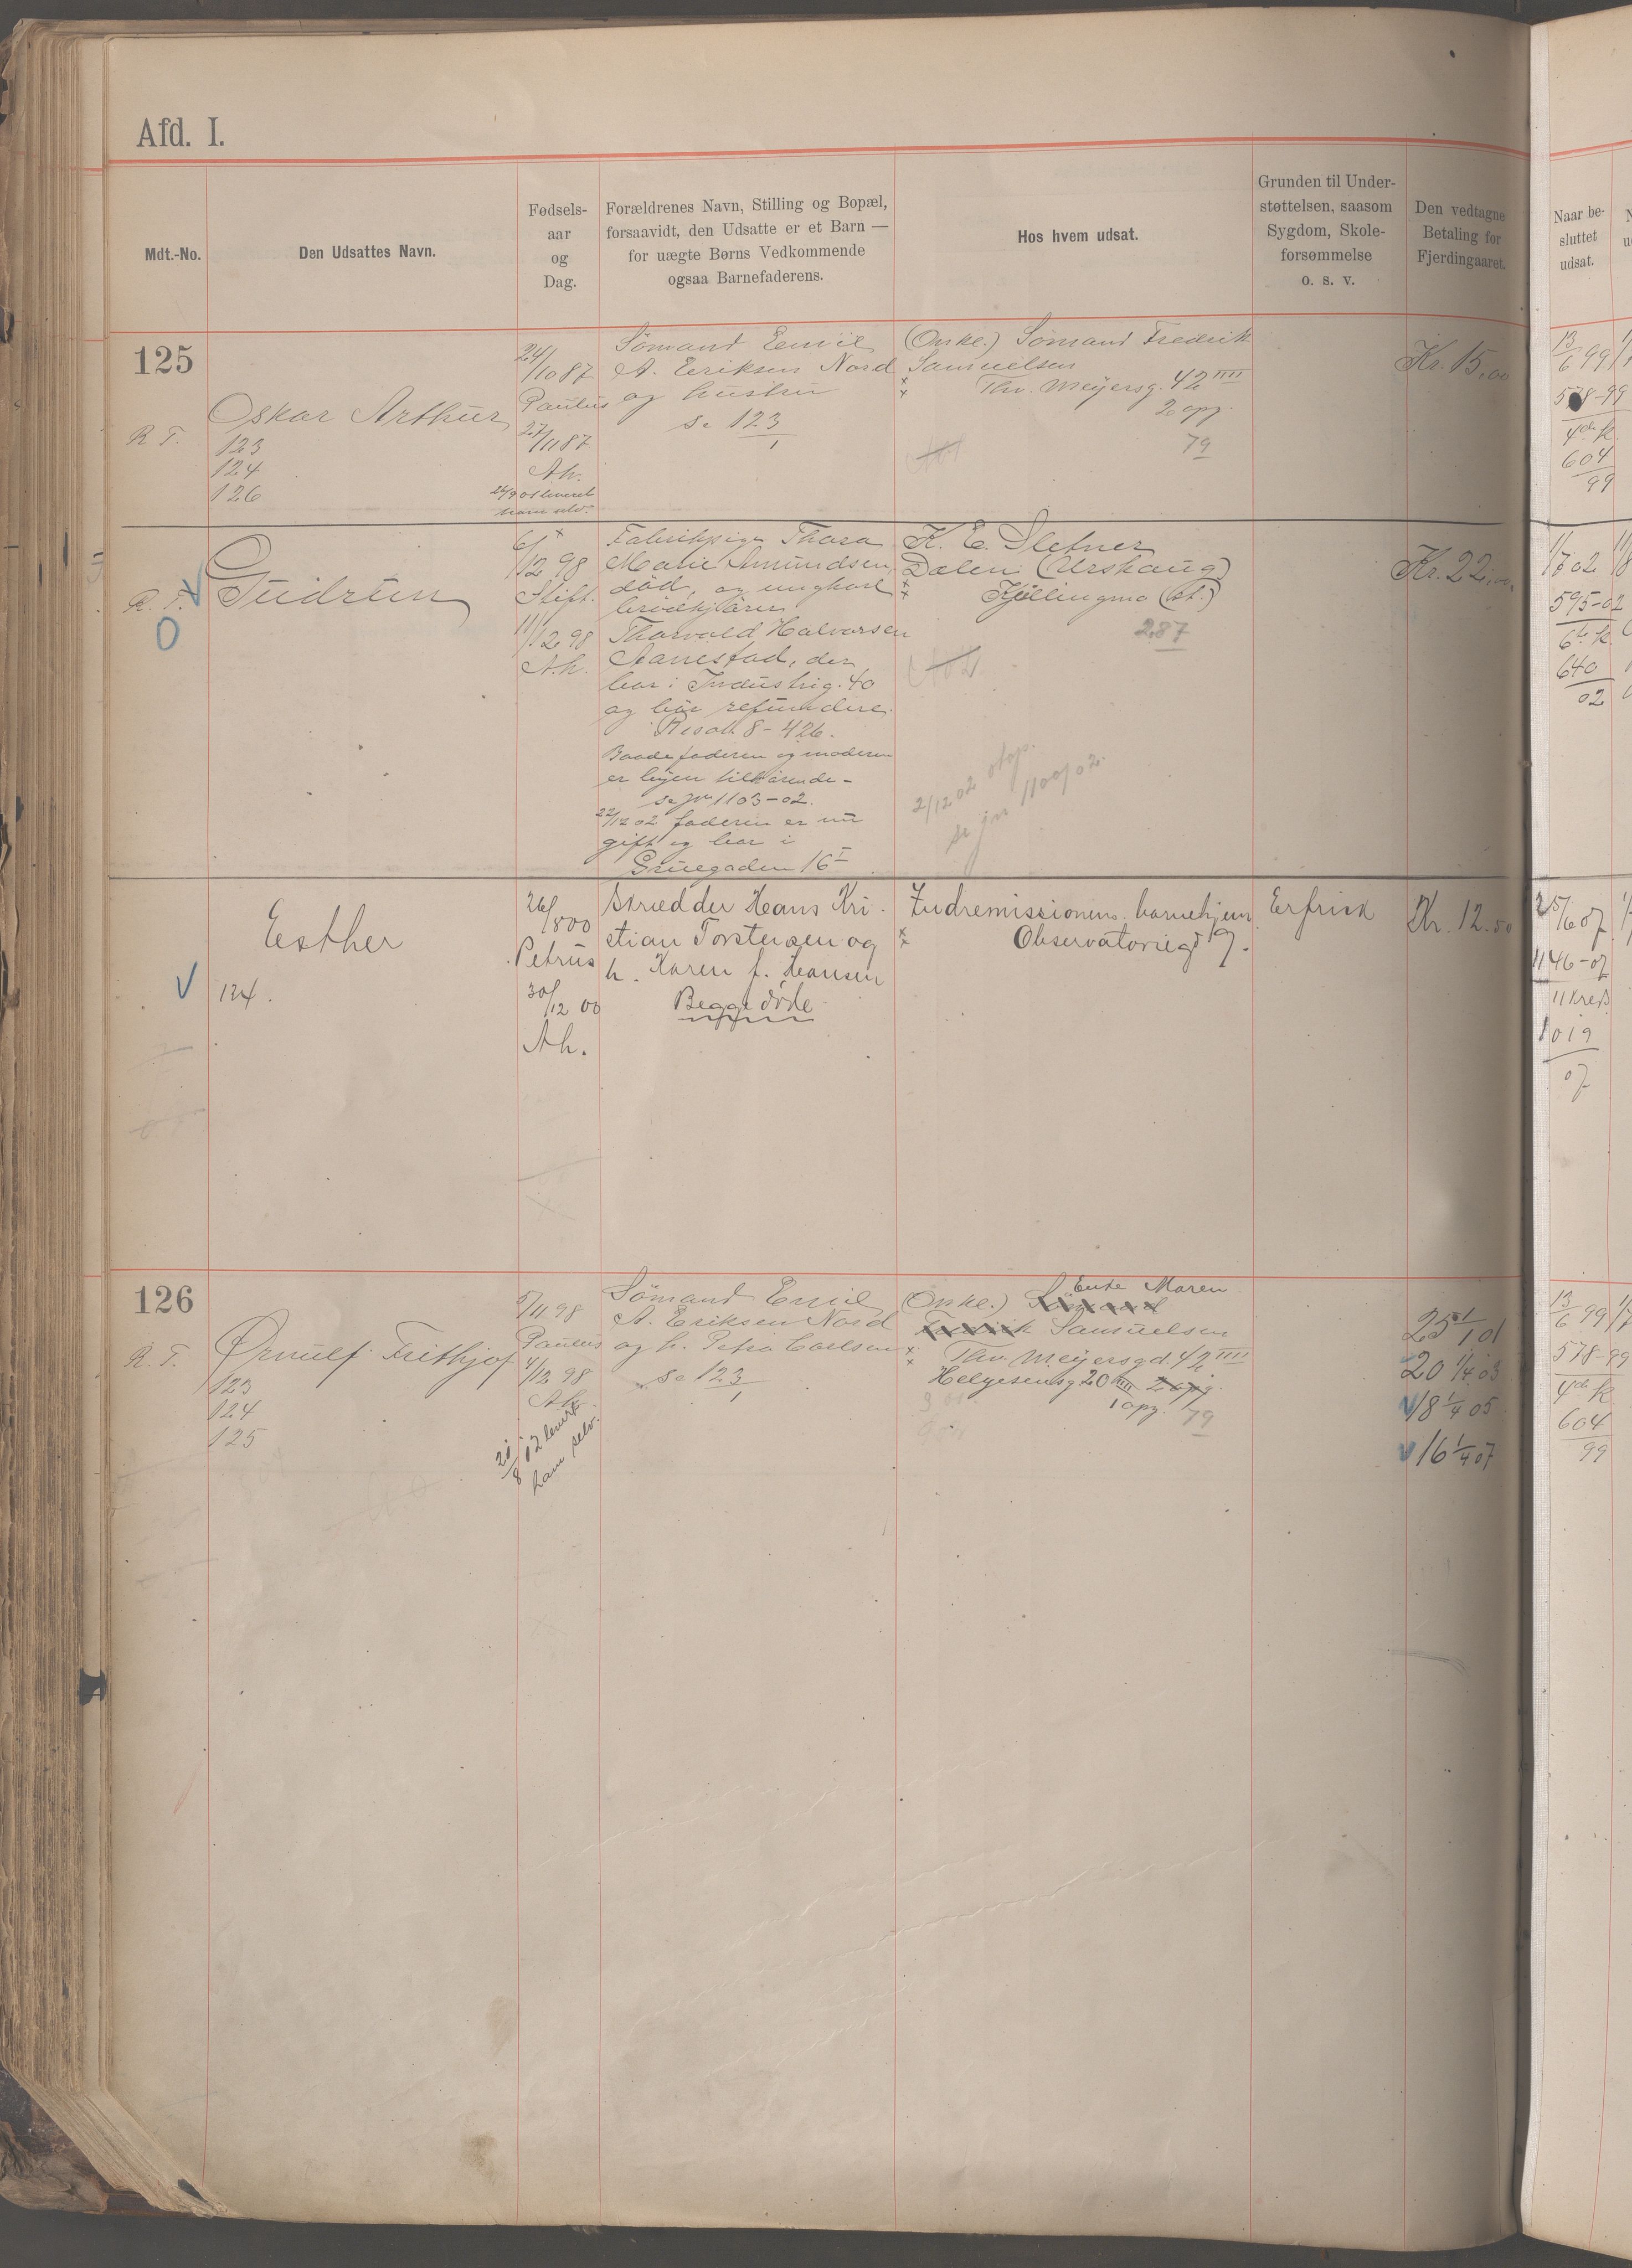 Afd. I.
Mdt.-No.
Den Udsattes Navn.
Fødsels-
aar
og
Dag.
Forældrenes Navn, Stilling og Bopæl,
forsaavidt, den Udsatte er et Barn —
for uægte Børns Vedkommende
ogsaa Barnefaderens.
Hos hvem udsat.
Grunden til Under-
støttelsen, saasom
Sygdom, Skole-
forsømmelse
o. s. v.
Den vedtagne
Betaling for
Fjerdingaaret.
Naar be-
sluttet
udsat.
125
R. T.
Oskar Arthur
123
124
126
24/10 87
Paulus
27/11 87
Ah.
Sömand Emil
A. Eriksen Nord
og hustru
se 123
1
(Onkel.) Sömand Fredrik
Samuelsen
Thv. Meyersg. 42 IIII
2 opg.
79
Kr. 15,00
13/6 99
578-99
4de k
604
99
R. T.
Gudrun
6/12 98
Stift.
11/12 98
Ah.
Fabrikpige Thora
Marie Amundsen,
död, og ungkarl
brödkjörer
Thorvald Halvorsen
Aanestad, der
bor i Industrig. 40
og bör refundere.
Resol. 8-426.
Baade faderen og moderen
er byen tilhörende -
se jn 1103-02.
22/12 02 faderen er nu
gift og bor i
Gruegaden 16 I
K. E. Sletner
Dalen (Urskaug)
Kjellingmo (st.)
287
2/12 02 opg.
se jn 1100/02.
Kr. 22,
1/7 02
595-02
6te k
640
02
Esther
124.
26/8 00
Petrus
30/12 00
Ah.
Skrædder Hans Kri-
stian Torstensen og
h. Karen f. Hansen
Begge döde
Indremissionens barnehjem
Observatorieg 19.
Er frisk
Kr. 12.50
25/6 07
1146-07
11 Kreds
1019
07
126
R. T.
Ørnulf Frithjof
123
124
125
5/11 98
Paulus
4/12 98
Ah.
21/8 12 levert
ham selv.
Sömand Emil
A. Eriksen Nord
og h. Petra Carlsen
se 123
1
Enke Maren
(Onkel.) Sömand
Fredrik Samuelsen
Thv. Meyersgd. 42 IIII
Helgesensg 20 IIII 2 opg.
1 opg. 79
25 1/1 01
20 1/4 03
18 1/4 05
16 1/4 07
13/6 99
578-99
4de k
604
99